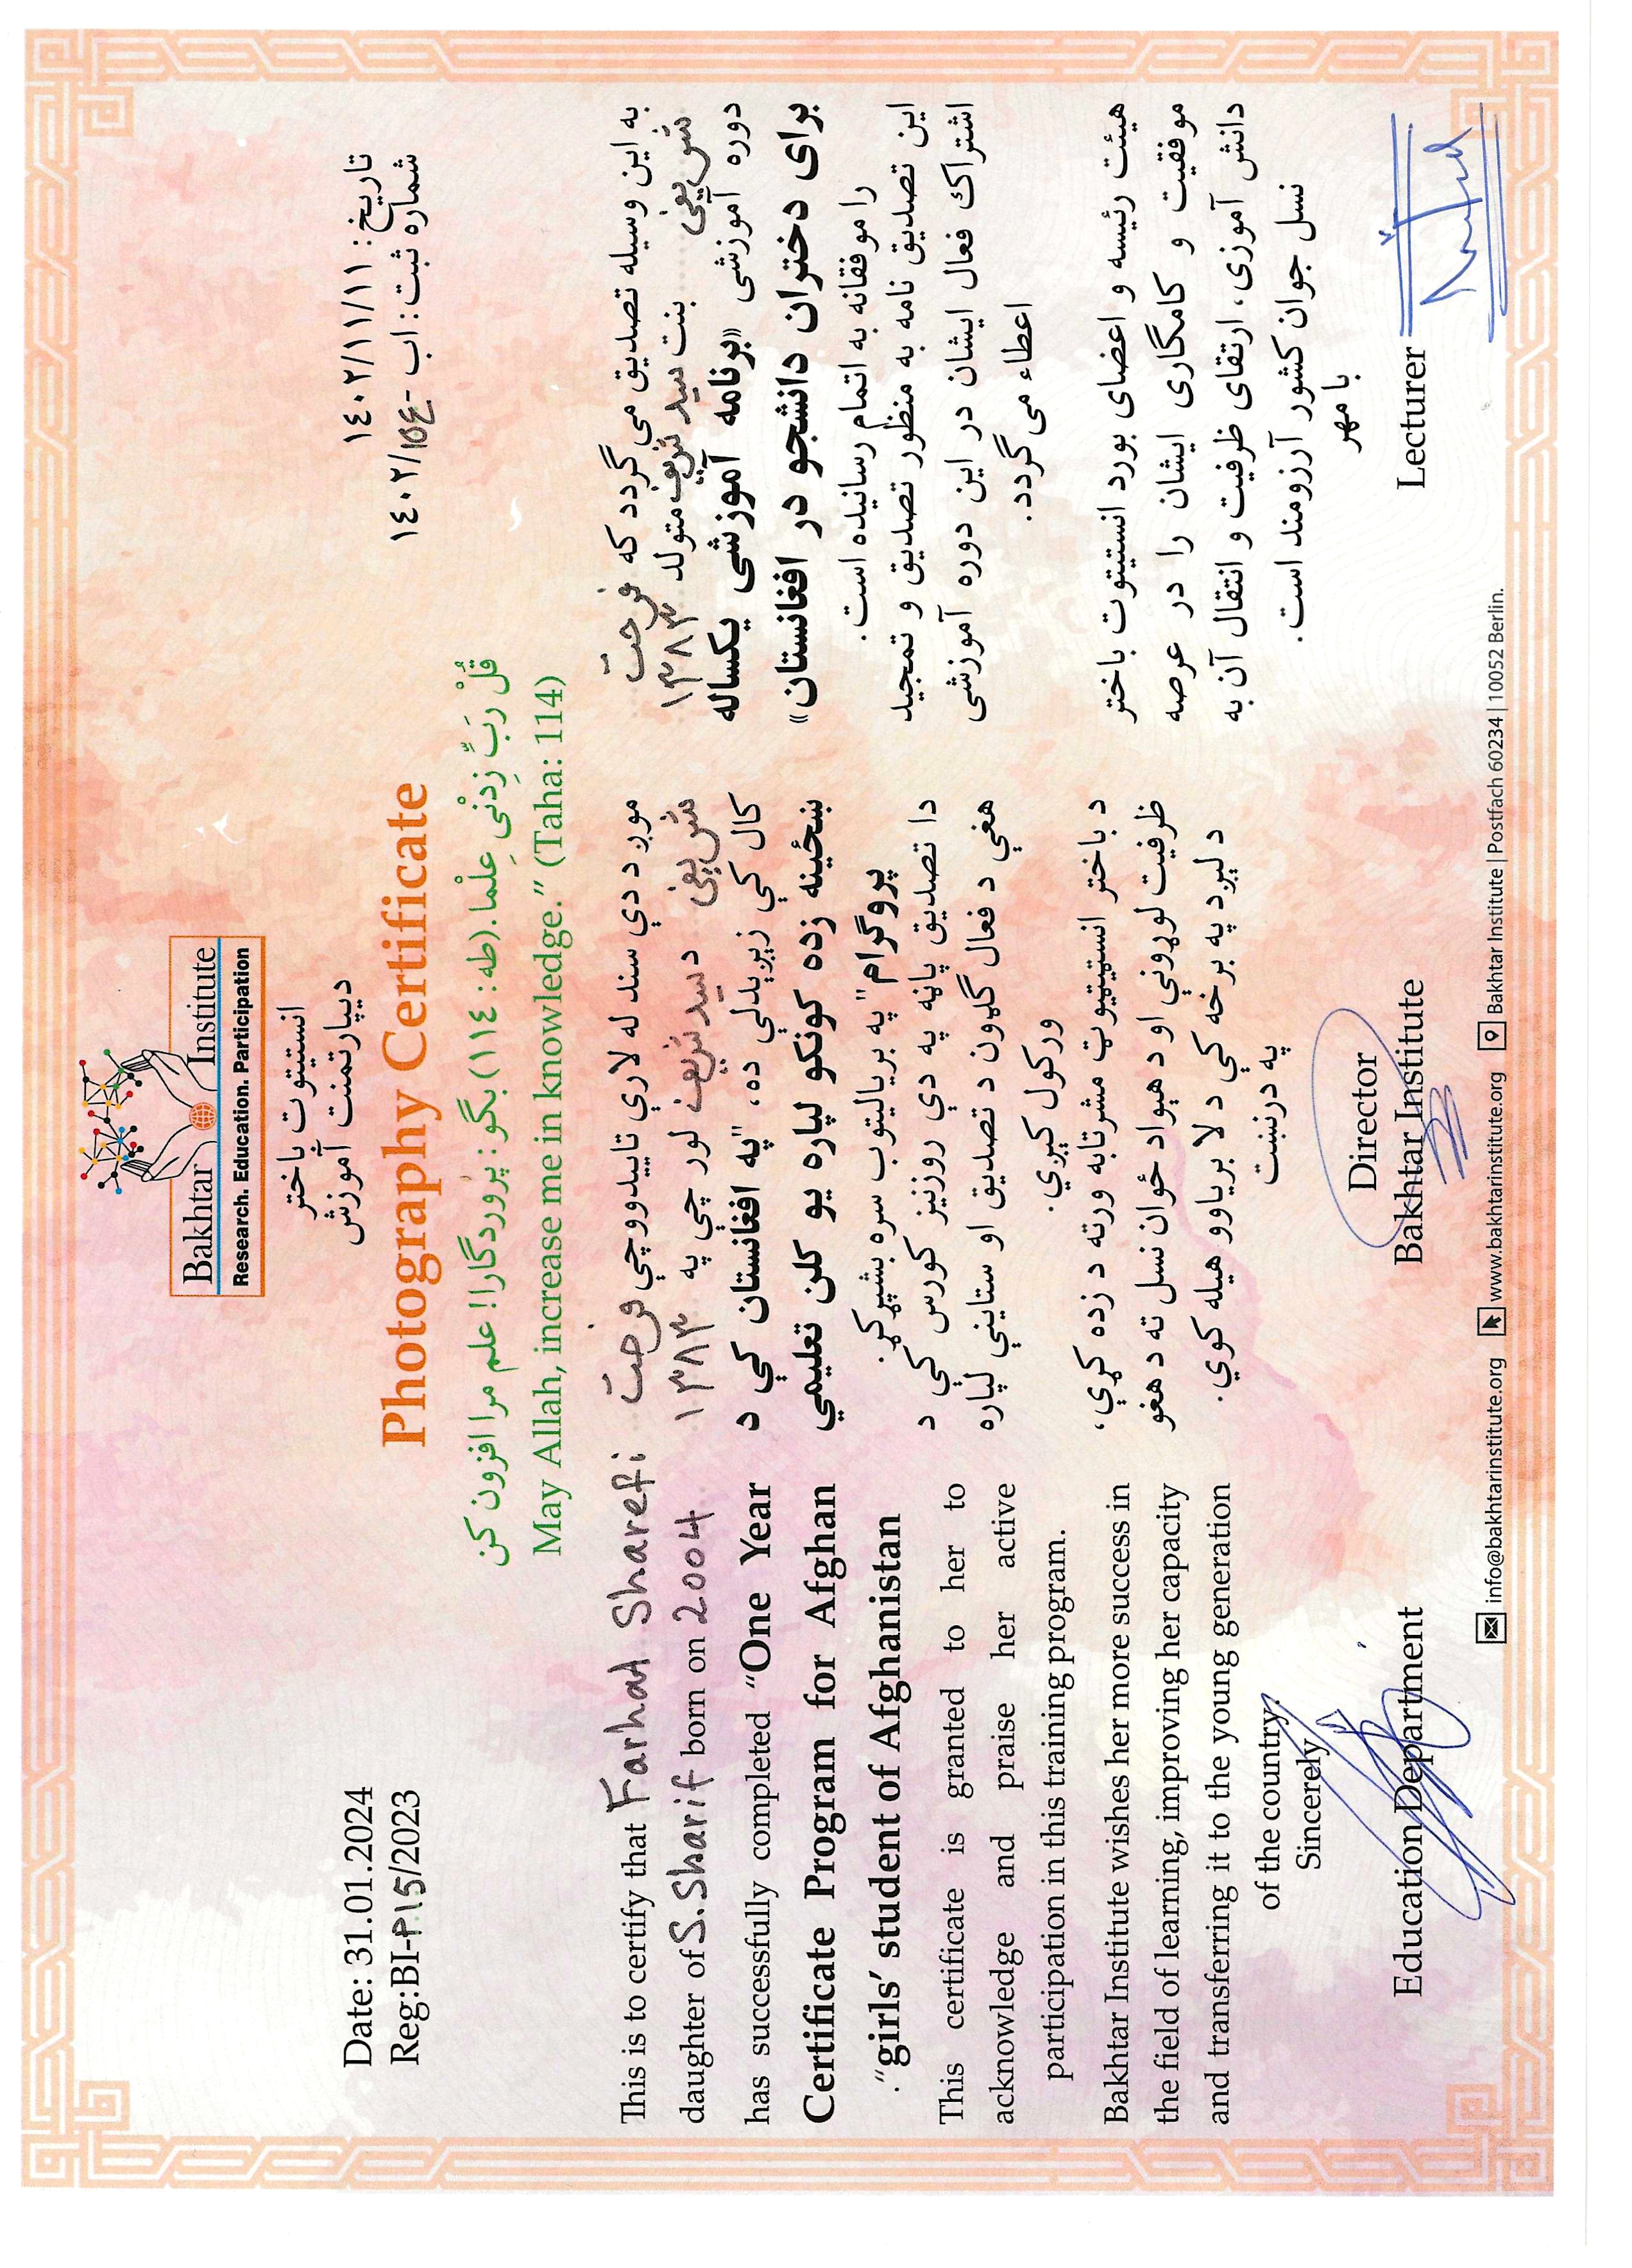 Bakhtar Institute
Research. Education. Participation
انستیتوت باختر
دیپارتمنت آموزش
Date: 31.01.2024
Reg:BI-P15/2023
تاریخ: ١٤٠٢/١١/١١
شماره ثبت: اب -١٥٤/١٤٠٢
Photography Certificate
قُلْ رَبِّ زِدْنی عِلْما.(طه: ١١٤) بگو: پروردگارا! علم مرا افزون کن
May Allah, increase me in knowledge.” (Taha: 114)
This is to certify that Farhat Sharefi
daughter of S.Sharif born on 2004
has successfully completed “One Year
Certificate Program for Afghan
.“girls’ student of Afghanistan
This certificate is granted to her to
acknowledge and praise her active
participation in this training program.
Bakhtar Institute wishes her more success in
the field of learning, improving her capacity
and transferring it to the young generation
of the country.
Sincerely
Education Department
موږ د دې سند له لارې تاییدووچې فرحت
شریفی د سید شریف لور چې په ١٣٨٣
کال کې زیږیدلې ده، "په افغانستان کې د
ښځینه زده کونکو لپاره یو کلن تعلیمي
پروګرام" په بریالیتوب سره بشپړکړ.
دا تصدیق پاڼه په دې روزنیز کورس کې د
هغې د فعال ګډون د تصدیق او ستاینې لپاره
ورکول کېږي.
د باختر انسټیټیوټ مشرتابه ورته د زده کړې،
ظرفیت لوړونې او د هېواد ځوان نسل ته د هغو
د لېږد په برخه کې د لا بریاوو هیله کوي.
په درنښت
Director
Bakhtar Institute
به این وسیله تصدیق می‌گردد که فرحت
شریفی بنت سید شریف متولد ١٣٨٣
دوره آموزشی «برنامه آموزشی یکساله
برای دختران دانشجو در افغانستان»
را موفقانه به اتمام رسانیده است.
این تصدیق نامه به منظور تصدیق و تمجید
اشتراك فعال ایشان در این دوره آموزشی
اعطاء می‌گردد.
هیئت رئیسه و اعضای بورد انستیتوت باختر
موفقیت و کامگاری ایشان را در عرصه
دانش آموزی، ارتقای ظرفیت و انتقال آن به
نسل جوان کشور آرزومند است.
با مهر
Lecturer
info@bakhtarinstitute.org www.bakhtarinstitute.org Bakhtar Institute | Postfach 60234 | 10052 Berlin.